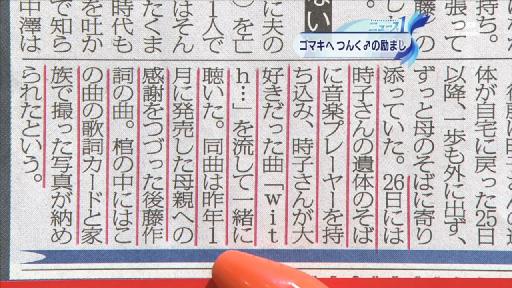 ニュース
ゴマキへ つんく♂の励まし
持ち。
張って
ない
に夫の
)を亡
1人で
はそん
たくま
を吐か
時代も
で知ら
中澤は
体が自宅に戻った25日
以降、一歩も外に出ず、
ずっと母のそばに寄り
添っていた。26日には
時子さんの遺体のそば
に音楽プレーヤーを持
ち込み、時子さんが大
好きだった曲「wit
h…」を流して一緒に
聴いた。同曲は昨年1
月に発売した母親への
感謝をつづった後藤作
詞の曲。棺の中にはこ
の曲の歌詞カードと家
族で撮った写真が納め
られたという。